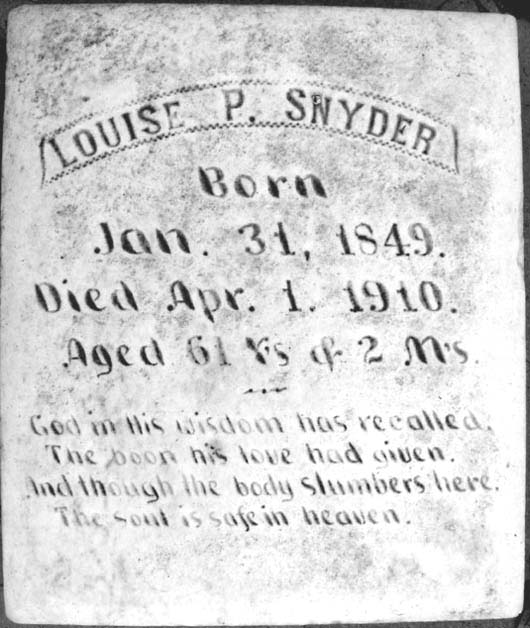 LOUISE P. SNYDER
Born
Jan. 31, 1849.
Died Apr. 1. 1910.
Aged 61 Y's & 2 M's.
God in His wisdom has recalled,
The boon his love had given.
And though the body slumbers here.
The soul is safe in heaven.